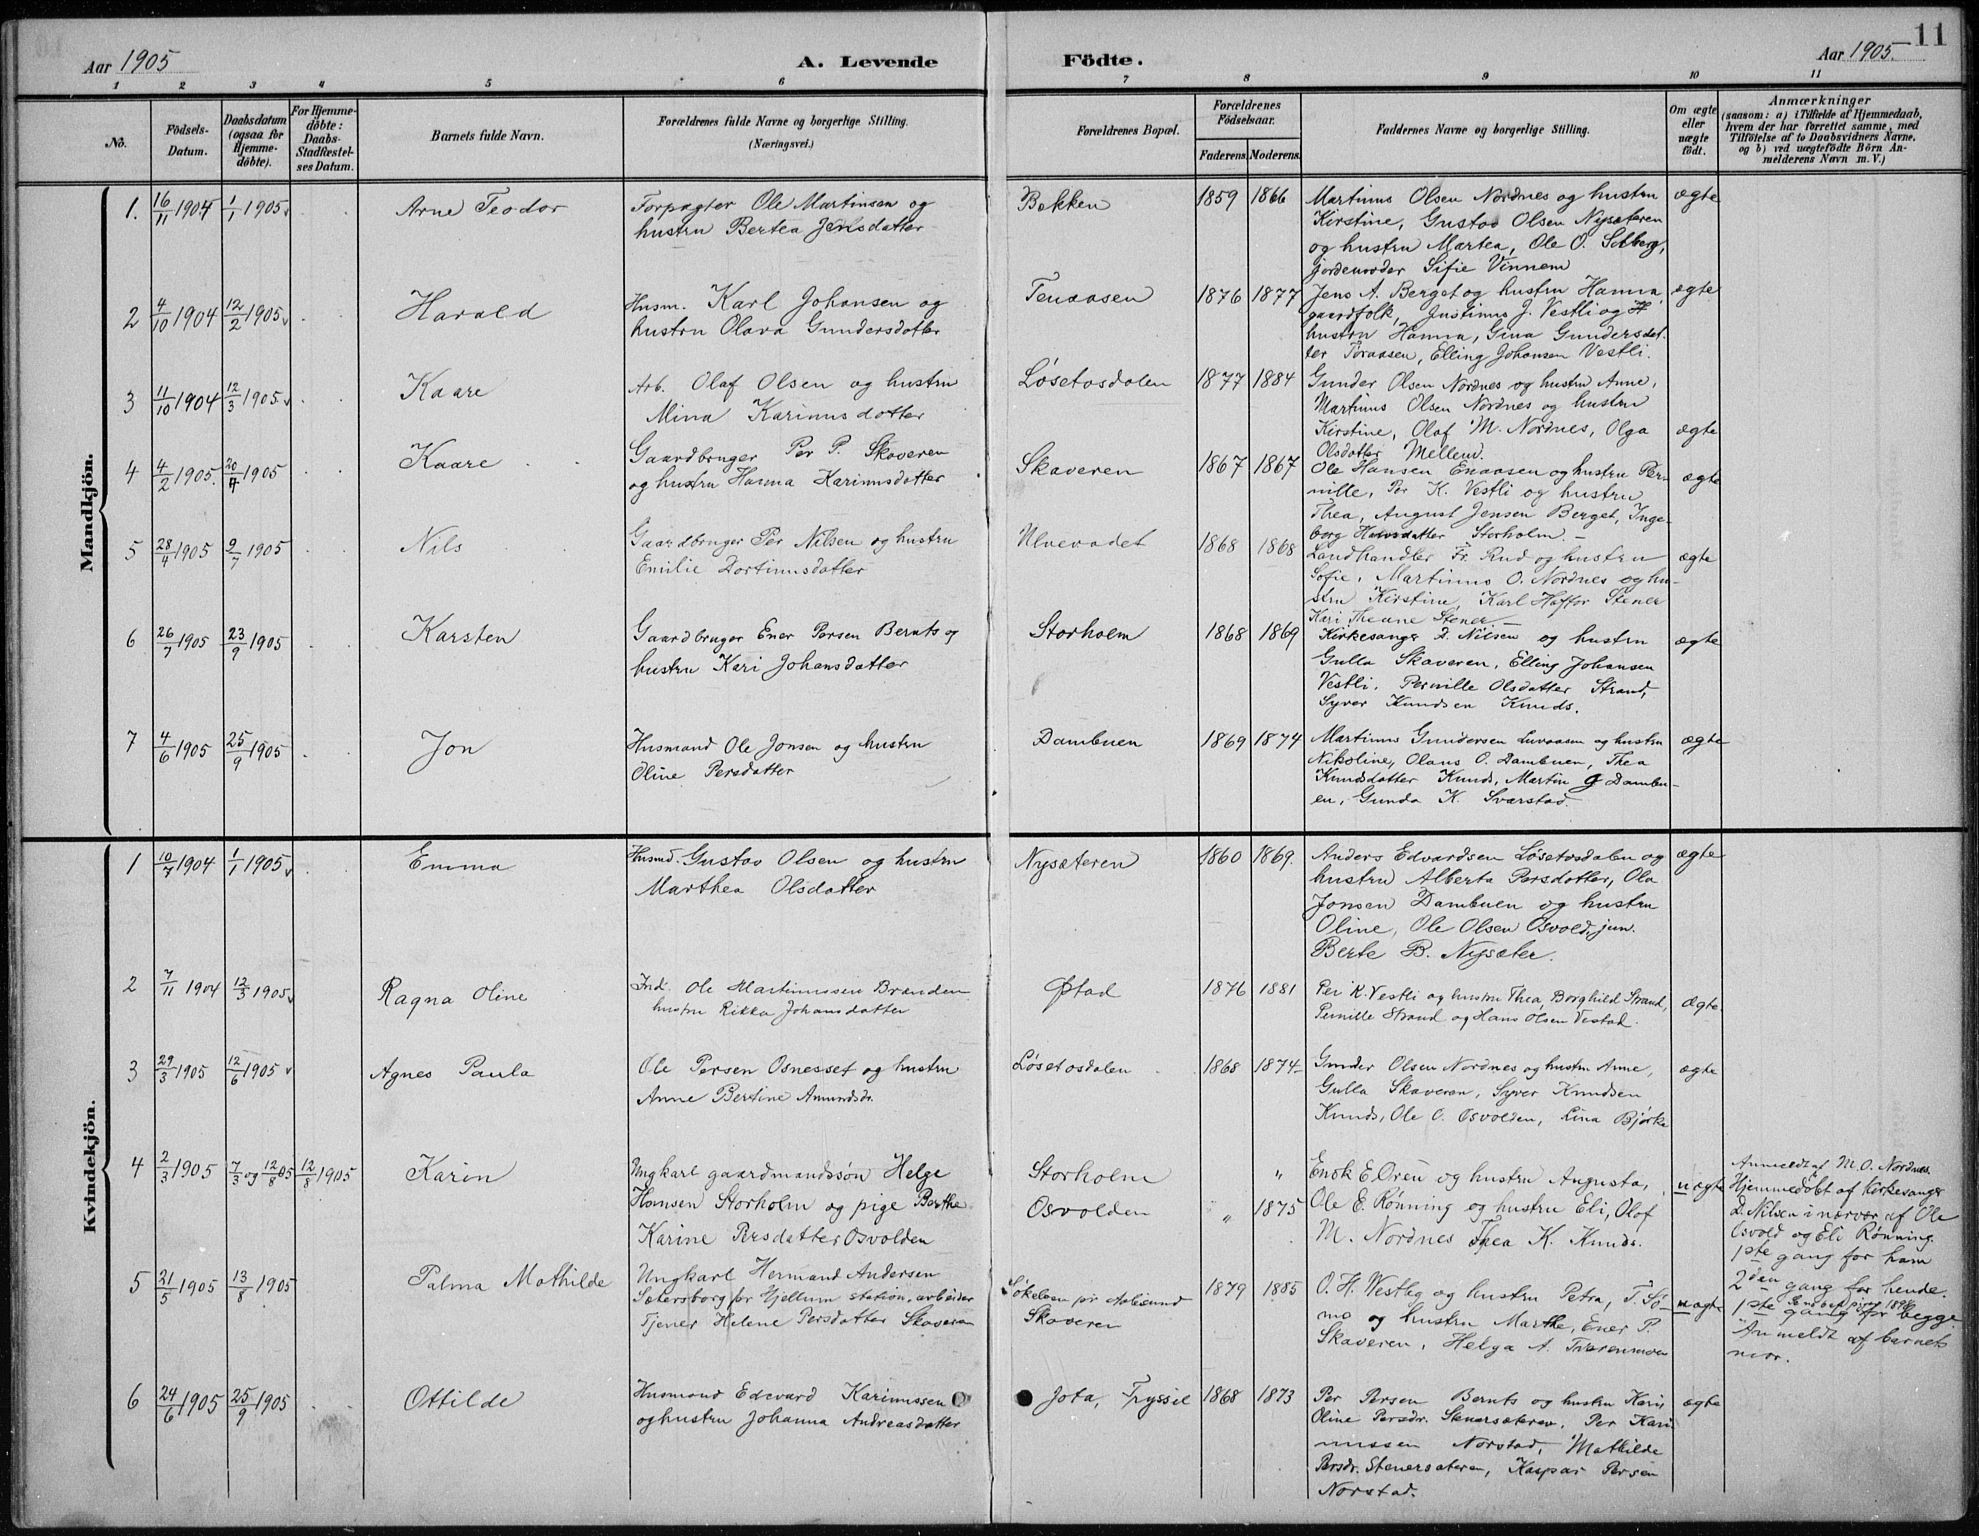 Aar 1905
A. Levende
Födte.
Aar 1905.
11
1 2 3 4 5 6 7 8 9 10 11
No.
Födsels-
Datum.
Daabsdatum
(ogsaa for
Hjemme-
döbte).
For Hjemme-
döbte:
Daabs-
Stadfæstel-
ses Datum.
Barnets fulde Navn.
Forældrenes fulde Navne og borgerlige Stilling.
(Næringsvei.)
Forældrenes Bopæl.
Forældrenes
Födselsaar.
Faderens. Moderens.
Faddernes Navne og borgerlige Stilling.
Om ægte
eller
uægte
födt.
Anmærkninger
(saasom: a) i Tilfælde af Hjemmedaab,
hvem der har forrettet samme, med
Tilföielse af to Daabsvidners Navne,
og b) ved uægtefödte Börn An-
melderens Navn m. V.)
Mandkjön.
1. 16/11 1904 1/1 1905
Arne Teodor
Forpagter Ole Martinsen og
hustru Bertea Jensdatter
Bakken
1859 1866
Martinus Olsen Nordnes og hustru
Kirstine, Gustav Olsen Nysæteren
og hustru Martea, Ole O. Solberg,
jordemoder Sifie Vinnem
ægte
2 4/10 1904 12/2 1905
Harald
Husm. Karl Johansen og
hustru Olava Gundersdatter
Tenaasen
1876 1877
Jens A. Berget og hustru Hanna,
gaardfolk, Justinus J. Vestli og H
hustru Hanna, Gina Gundersdat-
ter Toraasen, Elling Johansen Vestli.
ægte
3 11/10 1904 12/3 1905
Kaare
Arb. Olaf Olsen og hustru
Mina Karinusdatter
Løsetosdalen
1877 1884
Gunder Olsen Nordnes og hustru Anne,
Martinus Olsen Nordnes og hustru
Kirstine, Olaf M. Nordnes, Olga
Olsdatter Mellem.
ægte
4 4/2 1905. 20/4 1905
Kaare
Gaardbruger Per P. Skaveren
og hustru Hanna Karinusdatter
Skaveren
1867 1867
Ole Hansen Enaasen og hustru Per-
nille, Per K. Vestli og hustru
Thea, August Jensen Berget, Inge-
borg Hansdatter Storholm. –
ægte
5 28/4 1905 9/7 1905
Nils
Gaardbruger Per Nilsen og hustru
Emilie Dortinusdatter
Ulvevadet
1868 1868
Landhandler Fr. Rud og hustru
Sofie, Martinus O. Nordnes og hu-
stru Kirstine, Karl Haftor Stener
Kari Theane Stener
ægte
6 26/7 1905 23/9 1905
Karsten
Gaardbruger Ener Persen Bernts og
hustru Kari Johansdatter
Storholm
1868 1869
Kirkesanger D. Nilsen og hustru
Gulla Skaveren, Elling Johansen
Vestli, Pernille Olsdatter Strand,
Syver Knudsen Knuds.
ægte
7 4/6 1905 25/9 1905
Jon
Husmand Ole Jonsen og hustru
Oline Persdatter
Dambuen
1869 1874
Martinus Gundersen Luraasen og hustru
Nikoline, Olaus O. Dambuen, Thea
Knudsdatter Knuds, Martin G Dambu-
en, Gunda K. Svarstad.
ægte
Kvindekjön.
1 10/7 1904 1/1 1905
Emma
Husmd. Gustav Olsen og hustru
Marthea Olsdatter
Nysæteren
1860 1869.
Anders Edvardsen Løsetosdalen og
hustru Alberta Persdatter, Ole
Jonsen Dambuen og hustru
Oline, Ole Olsen Osvold, jun.
Berte B. Nysæter.
ægte
2 7/11 1904 12/3 1905
Ragna Oline
Ind. Ole Martinussen Brænden
hustru Rikka Johansdatter
Østad
1876 1881
Per K. Vestli og hustru Thea, Borghild Strand,
Pernille Strand og Hans Olsen Vestad.
Ægte.
3 29/3 1905 12/6 1905
Agnes Paula
Ole Persen Osnesset og hustru
Anne Bertine Amundsdr.
Løsetosdalen
1868 1874
Gunder Olsen Nordnes og hustru Anne,
Gulla Skaveren, Syver Knudsen
Knuds, Ole O. Osvolden, Lina Bjørke
ægte
4 2/3 1905 7/3 og 12/8 05 12/8 1905
Karin
Ungkarl gaardmandssøn Helge
Hansen Storholm og pige Berthe
Karine Persdatter Osvolden
Storholm
Osvolden
"
" 1875
Enok E. Øren og hustru Augusta,
Ole E. Rønning og hustru Eli, Olof
M. Nordnes Thea K. Knuds.
uægte
Anmeldt af M. O. Nordnes.
Hjemmedøbt af Kirkesanger
D. Nilsen i nærvær af Ole
Osvold og Eli Rønning.
1ste gang for ham
2den gang for hende.
5 21/5 1905 13/8 1905
Palma Mathilde
Ungkarl Hermand Andersen
Sætersborg pr Hjellum station, arbeider
Tjener Helene Persdatter Skaveren
Søkelsen pr Aalesund
Skaveren
1879 1885
O. H. Vestby og hustru Petra, T. Sö-
mo og hustru Marthe, Ener P.
Skaveren, Helga A. Tværenmoen
uægte
1ste gang for begge.
Anmeldt af barnets
mor.
6 24/6 1905 25/9 1905
Ottilde
Husmand Edevard Karinussen
og hustru Johanna Andreasdatter
Jota, Trysil
1868 1873
Per Persen Bernts og hustru Kari,
Oline Persdr. Stenersæteren, Per Kari-
nussen Norstad, Mathilde
Persdr. Stenersæteren, Kaspar Persen
Norstad.
ægte